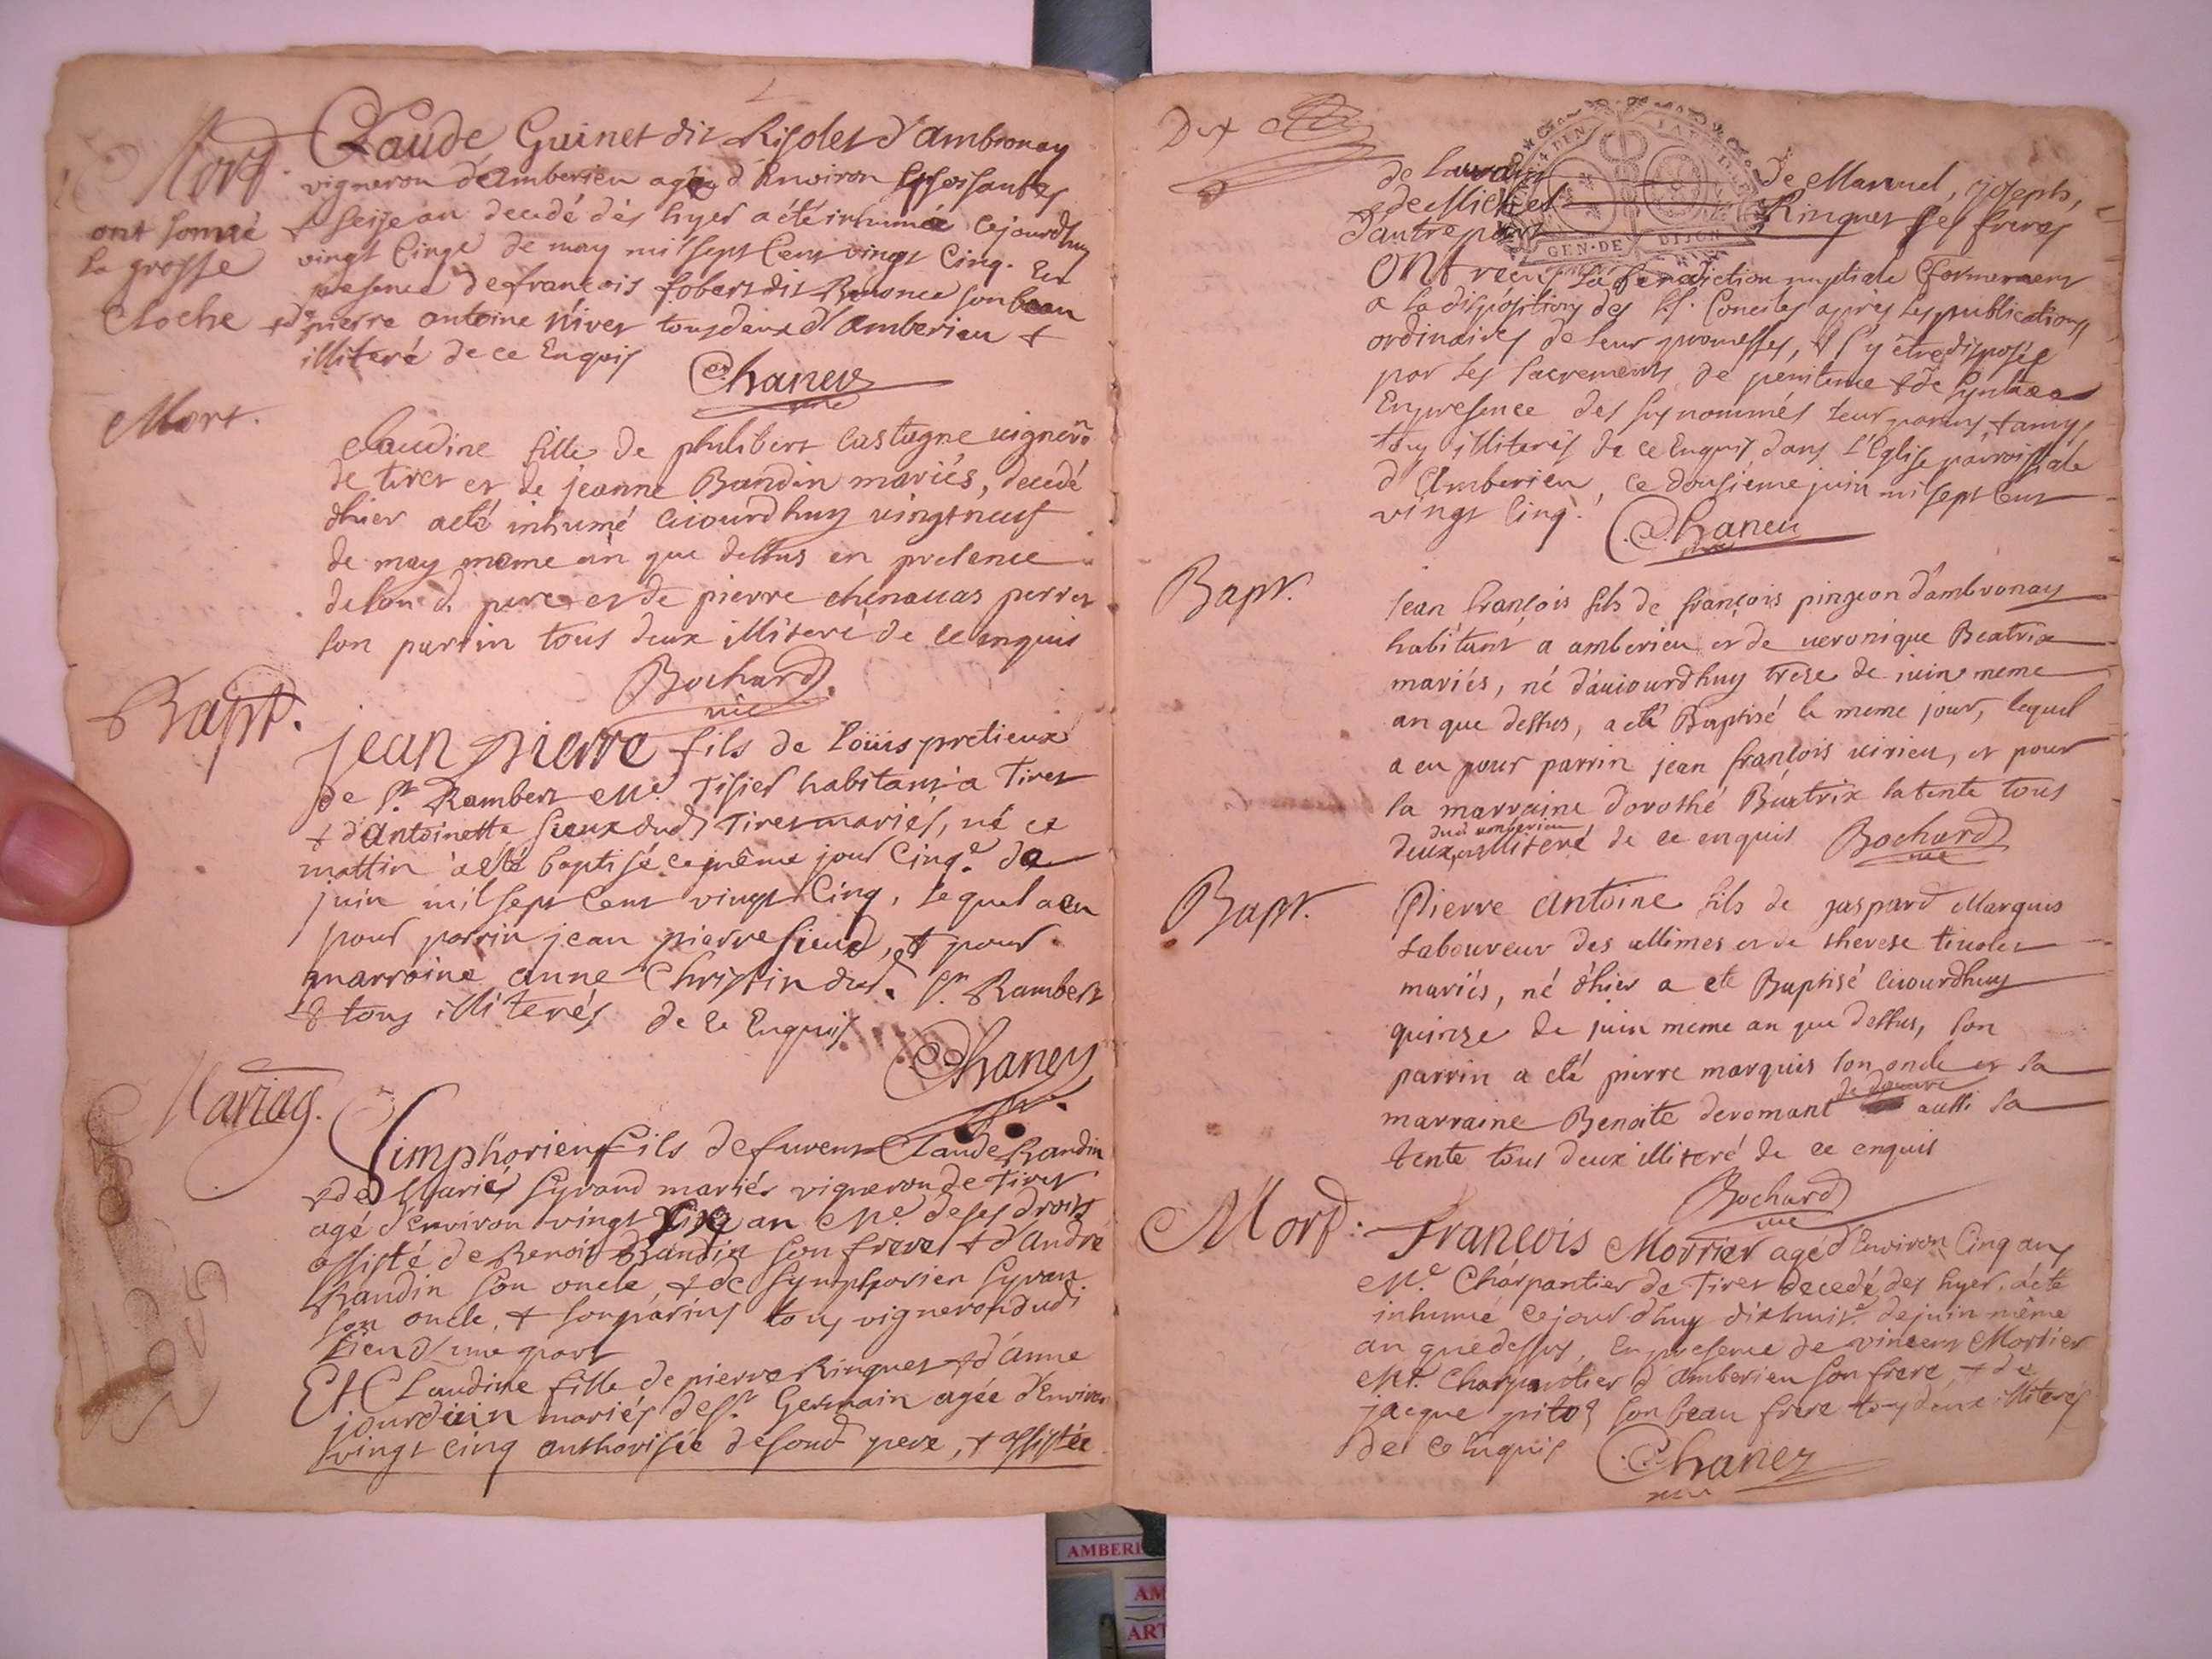 Mort.
ont sonné
la grosse
Cloche
Claude Guinet dit Risolet d'ambronay
vigneron d'Amberieu agé d'Environ soisantes
& seise an decedé dés hyer a été inhumée cejourdhuy
vingt Cinqe de may mil sept Cent vingt Cinq. En
presence de francois Robert dit son beau
& de pierre antoine Niver tous deux d'Amberieu &
illiteré de ce Enquis
Chaney
Mort.
Claudine fille de philibert Castagne vigneron
de tiret et de jeanne Bandin mariés, decedé
dhier a eté inhumé ciourdhuy vingt neuf
de may meme an que dessus en presence
de son d. pere et de pierre chenauas perret
son parrin tous deux illiteré de ce enquis
Bochard
vic
Bapt.
jean pierre fils de Loüis pretieux
de St. Rambert Me. Tisier habitant a Tiret
& d'antoinette Sieux dud. Tiret mariés, né ce
mattin a eté baptisé ce même jour Cinqe. de
juin mil sept Cent vingt Cinq, lequel a eu
pour parrin jean pierre Sieux, et pour
marraine anne Christin dud. St. Rambert
& tous illiterés de ce Enquis
Chaney
Mariag.
Simphorien fils de furent Claude Randin
& de Marie Syvand mariés vigneron de Tiret
agé d'environ vingt six an Me. de ses droits
assisté de Benoit Randin son frere & d'André
Randin son oncle, & de Symphorien Syvan
son oncle, & son parins tous vigneron dudi
lieu d'une part
Et Claudine fille de pierre Ringuet & d'Anne
jourdain mariés de St. Germain agée d'Environ
vingt cinq authorisée de sond. pere, & assistée
Dix
de Laurain de Manuel, joseph,
& de Michel Ringuet ses freres
d'autre part
Ont recu la benediction nuptiale Conformement
a la disposition des SS. Conciles apres les publications
ordinaires de leur promesses, & s'y être disposés
par les sacrements de penitence & de
En presence des susnommés leur parens, & amys
tous illiterés de ce Enquis dans L'Eglise parroissiale
d'Amberieu, ce dousiéme juin mil sept Cent
vingt Cinq.
Chaney
Bapt.
jean francois fils de françois pingeon d'ambronay
habitant a amberieu et de ueronique Beatrix
mariés, né d'auiourdhuy treze de iuin meme
an que dessus, a eté Baptisé le meme jour, lequel
a eu pour parrin jean françois uirieu, et pour
la marraine dorothé Beatrix la tente tous
dud amberieu
deux, illiteré de ce enquis Bochard
vic
Bapt.
Pierre antoine fils de gaspard Marquis
Laboureur des allimes et de therese tinolet
mariés, né d'hier a eté Baptisé ciourdhuy
quinze de juin meme an que dessus, son
parrin a eté pierre marquis son oncle et sa
de douvre
marraine Benoite deromant aussi sa
tente tous deux illiteré de ce enquis
Bochard
vic
Mort.
François Morrier agé d'Environ Cinq ans
Me. Charpantier de Tiret decedé des hyer a été
inhumé cejourdhuy dixhuite. de juin même
an que dessus, En presence de vincent Morrier
Me. Charpantier d'Amberieu son frere, & de
jacque pitot son beau frere tous deux illiterés
de ce Enquis
Chaney
GEN. DE DIJON
AMBERI
AM
ART